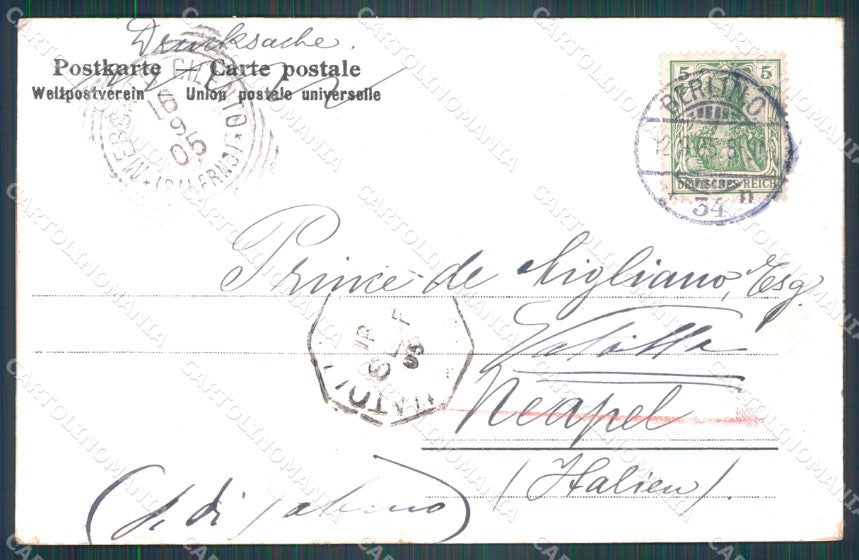 Drucksache.
Postkarte – Carte postale
Weltpostverein Union postale universelle
CILENTO
(SALERNO)
9 05
5 5
BERLIN. O
DEUTSCHES REICH
34 n
Prince de Migliano, Esq.
Vatolla
Neapel
(Italien).
( di )
CARTOLINOMANIA